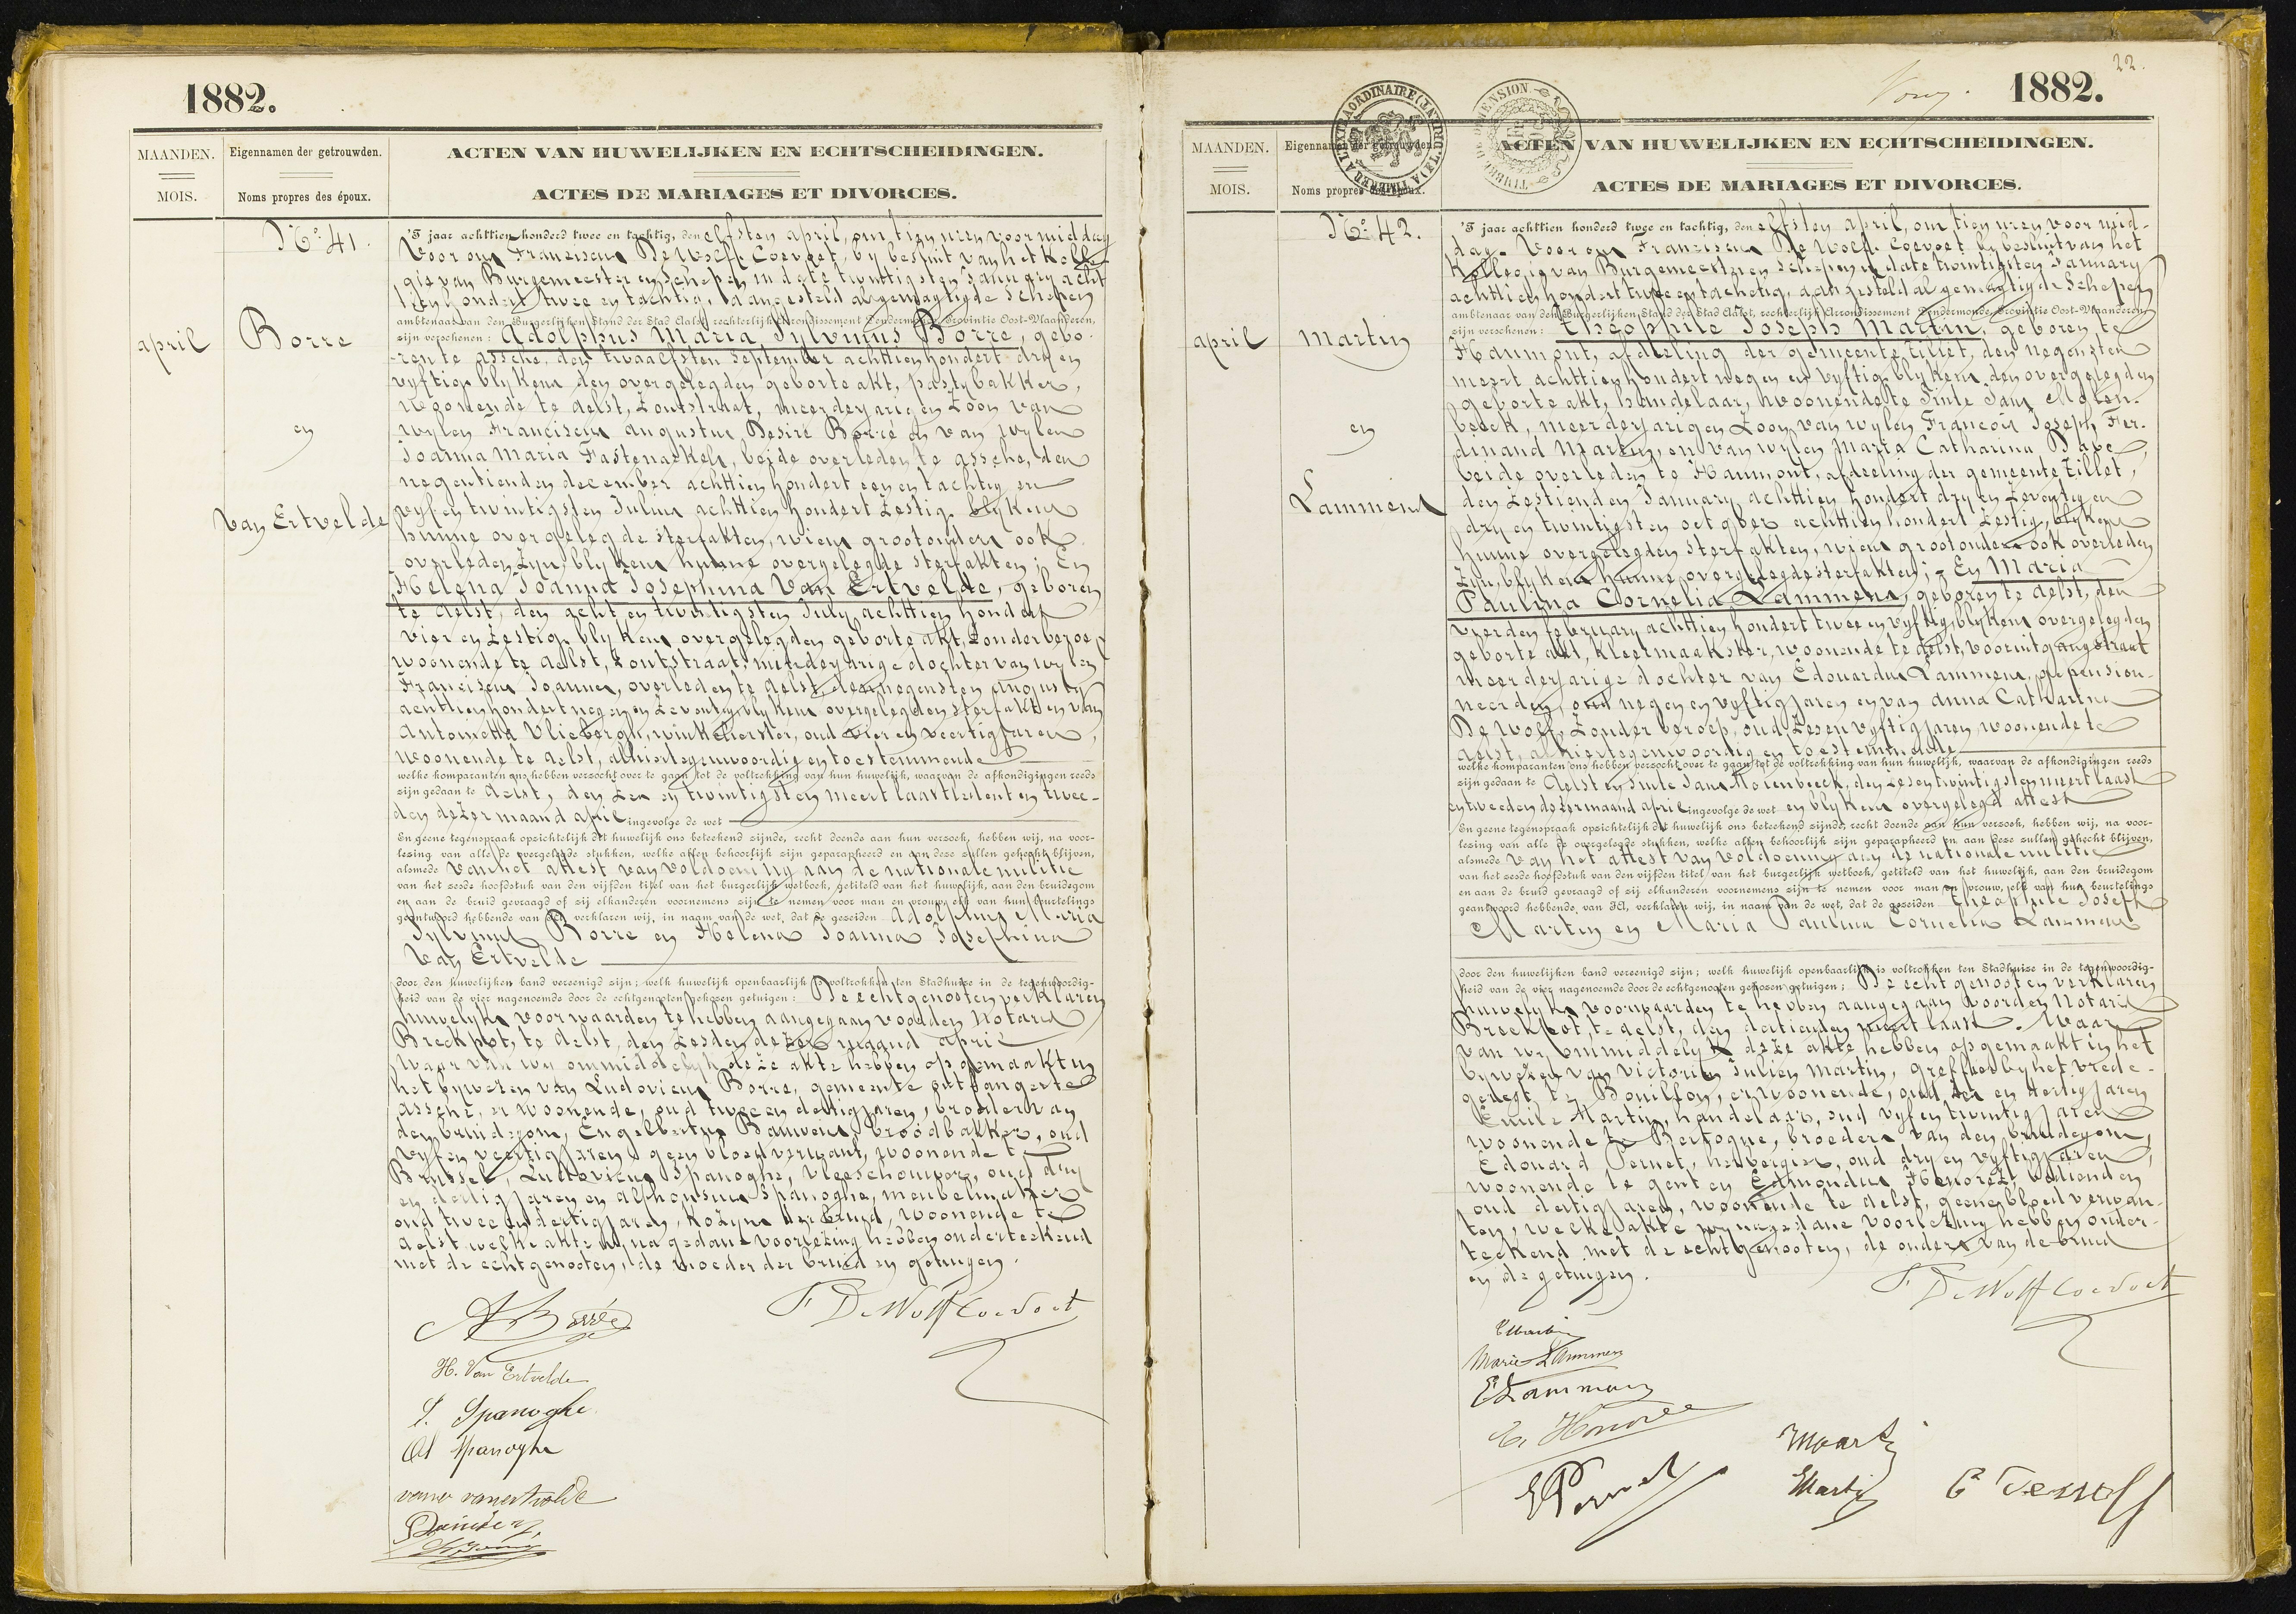 1882.
MAANDEN.
MOIS.
Eigennamen der getrouwden.
Noms propres des époux.
ACTEN VAN HUWELIJKEN EN ECHTSCHEIDINGEN.
ACTES DE MARIAGES ET DIVORCES.
april
No. 41.
Borre
en
Van Ertvelde
'T jaar achttien honderd twee en tachtig, den elfsten april, om tien uren voormiddag
Voor ons Franciscus De Wolf-Coevoet, by besluit van het Kolle-
gie van Burgemeester en Schepen in date twintigsten January acht
tien hondert twee en tachtig, aangesteld als gemagtigde Schepen
ambtenaar van den Burgerlijken Stand der Stad Aalst, rechterlijk Arrondissement Dendermonde, Provintie Oost-Vlaanderen,
zijn verschenen: Adolphus Maria Sylvinus Borre, gebo-
ren te Assche, den twaalfsten September achttien hondert dry en
vyftig, blykens den overgelegden geborte akt, pastybakker,
woonende te Aelst, Zoutstraat, meerderjarigen Zoon van
wylen Franciscus Augustus Desiré Borré en van wylen
Joanna Maria Fastenaekels, beide overleden te Assche, den
negentienden december achttien hondert een en tachtig en
vyf en twintigsten Julius achttien hondert Zestig, blykens
hunne overgelegde sterfakten, wiens grootouders ook
overleden Zyn, blykens hunne overgelegde sterfakten; En
Helena Joanna Josephina Van Ertvelde, geboren
te Aelst, den acht en twintigsten July achttien hondert
vier en Zestig, blykens overgelegden geborte akt, Zonder beroep
woonende te Aelst, Zoutstraat, minderjarige dochter van wylen
Franciscus Joannes, overleden te Aelst, den negensten Augusty
achttien hondert negen en Zeventig, blykens overgelegden sterfakt en van
Antoinetta Vliebergh, winkelierster, oud vier en veertig jaren,
woonende te Aelst, alhier tegenwoordig en toestemmende
welke komparanten ons hebben verzocht over te gaan tot de voltrekking van hun huwelijk, waarvan de afkondigingen reeds
zijn gedaan te Aelst, den Zes en twintigsten meert laastleden en twee-
den dezer maand april ingevolge de wet
En geene tegenspraak opzichtelijk dit huwelijk ons beteekend zijnde, recht doende aan hun verzoek, hebben wij, na voor-
lezing van alle de overgelegde stukken, welke allen behoorlijk zijn geparapheerd en aan deze zullen gehecht blijven,
alsmede van het attest van voldoening aan de nationale militie
van het zesde hoofdstuk van den vijfden titel van het burgerlijk wetboek, getiteld van het huwelijk, aan den bruidegom
en aan de bruid gevraagd of zij elkanderen voornemens zijn te nemen voor man en vrouw, elk van hun beurtelings
geantwoord hebbende van JA, verklaren wij, in naam van de wet, dat de gezeiden Adolphus Maria
Sylvinus Borre en Helena Joanna Josephina
Van Ertvelde
door den huwelijken band vereenigd zijn; welk huwelijk openbaarlijk is voltrokken ten Stadhuize in de tegenwoordig-
heid van de vier nagenoemde door de echtgenoten gekozen getuigen: De echtgenooten verklaren
huwelyks voorwaarden te hebben aangegaan voor den Notaris
Breckpot, te Aelst, den Zesden dezer maand april
Waar van wy ommiddelyk deze akte hebben opgemaakt in
het bywezen van Ludovicus Borre, gemeente ontvanger te
Assche, er woonende, oud twee en dertig jaren, broeder van
den bruidegom, Engelbertus Bauwens, broodbakker, oud
vyf en veertig jaren, geen bloedverwant, woonende te
Brussel, Ludovicus Spanoghe, vleeschouwer, oud dry
en dertig jaren en Alphonsus Spanoghe, meubelmaker
oud twee en dertig jaren, kozyns der bruid, woonende te
Aelst welke akte wy na gedane voorlezing hebben onderteekend
met de echtgenooten, de moeder der bruid en getuigen.
A Borré
F De Wolf Coevoet
H. Van Ertvelde
L. Spanoghe
Al Spanoghe
1882.
22.
MAANDEN.
MOIS.
Eigennamen der getrouwden.
Noms propres des époux.
ACTEN VAN HUWELIJKEN EN ECHTSCHEIDINGEN.
ACTES DE MARIAGES ET DIVORCES.
april
No. 42.
Martin
en
Lammens
'T jaar achttien honderd twee en tachtig, den elfsten april, om tien uren voormid-
dag. Voor ons Franciscus De Wolf-Coevoet, by besluit van het
Kollegie van Burgemeester en Schepen in date twintigsten January
achttien hondert twee en tachetig, aangesteld als gemagtigde Schepen
ambtenaar van den Burgerlijken Stand der Stad Aalst, rechterlijk Arrondissement Dendermonde, Provintie Oost-Vlaanderen
zijn verschenen: Théophile Joseph Martin, geboren te
Haumont, afdeeling der gemeente Tillet, den negensten
meert achttien hondert negen en vyftig, blykens den overgelegden
geborte akt, handelaar, woonende te Sinte Jans Molen-
beeck, meerderjarigen Zoon van wylen François Joseph Fer-
dinand Martin, en van wylen Maria Catharina Dave,
beide overleden te Haumont, afdeeling der gemeente Tillet,
den Zestienden January achttien hondert dry en Zeventig en
dry en twintigsten october achttien hondert Zestig, blykens
hunne overgelegden sterfakten, wiens grootouders ook overleden
Zyn, blykens hunne overgelegde sterfakten; - En Maria
Paulina Cornelia Lammens, geboren te Aelst, den
vierden february achttien hondert twee en vyftig, blykens overgelegden
geborte akt, kleermaakster, woonende te Aelst, Vooruitgangstraat
meerderjarige dochter van Edouardus Lammens, gepension-
neerden, oud negen en vyftig jaren en van Anna Catharina
De Wolf, Zonder beroep, oud Zes en vyftig jaren, woonende te
Aelst, alhier tegenwoordig en toestemmende
welke komparanten ons hebben verzocht over te gaan tot de voltrekking van hun huwelijk, waarvan de afkondigingen reeds
zijn gedaan te Aelst en Sinte Jans Molenbeeck, den Zes en twintigsten meert laast
en tweeden dezer maand april ingevolge de wet en blykens overgelegd attest
En geene tegenspraak opzichtelijk dit huwelijk ons beteekend zijnde, recht doende aan hun verzoek, hebben wij, na voor-
lezing van alle de overgelegde stukken, welke allen behoorlijk zijn geparapheerd en aan deze zullen gehecht blijven,
alsmede van het attest van voldoening aan de nationale militie
van het zesde hoofdstuk van den vijfden titel van het burgerlijk wetboek, getiteld van het huwelijk, aan den bruidegom
en aan de bruid gevraagd of zij elkanderen voornemens zijn te nemen voor man en vrouw, elk van hun beurtelings
geantwoord hebbende, van JA, verklaren wij, in naam van de wet, dat de gezeiden Theophile Joseph
Martin en Maria Paulina Cornelia Lammens
door den huwelijken band vereenigd zijn; welk huwelijk openbaarlijk is voltrokken ten Stadhuize in de tegenwoordig-
heid van de vier nagenoemde door de echtgenoten gekozen getuigen: De echtgenooten verklaren
huwelyks voorwaarden te hebben aangegaan voor den Notaris
Breckpot, te Aelst, den dertienden meert laast. Waar
van wy ommiddelyk deze akte hebben opgemaakt in het
bywezen van Victorin Julien Martin, greffier by het vrede-
geregt te Bouillon, er woonende, oud Zes en dertig jaren
Emile Martin, handelaar, oud vyf en twintig jaren
woonende te Bertogne, broeders van den bruidegom,
Edouard Pernet, herbergier, oud dry en vyftig jaren,
woonende te Gent en Edmondus Honorez, bedienden
oud dertig jaren, woonende te Aelst, geene bloedverwan-
ten, welke akte wy na gedane voorlezing hebben onder-
teekend met de echtgenooten, de ouders van de bruid
en de getuigen.
F De Wolf Coevoet
Marie Lammens
E Lammens
E. Honorez
E Pernet
Martin
E Martin